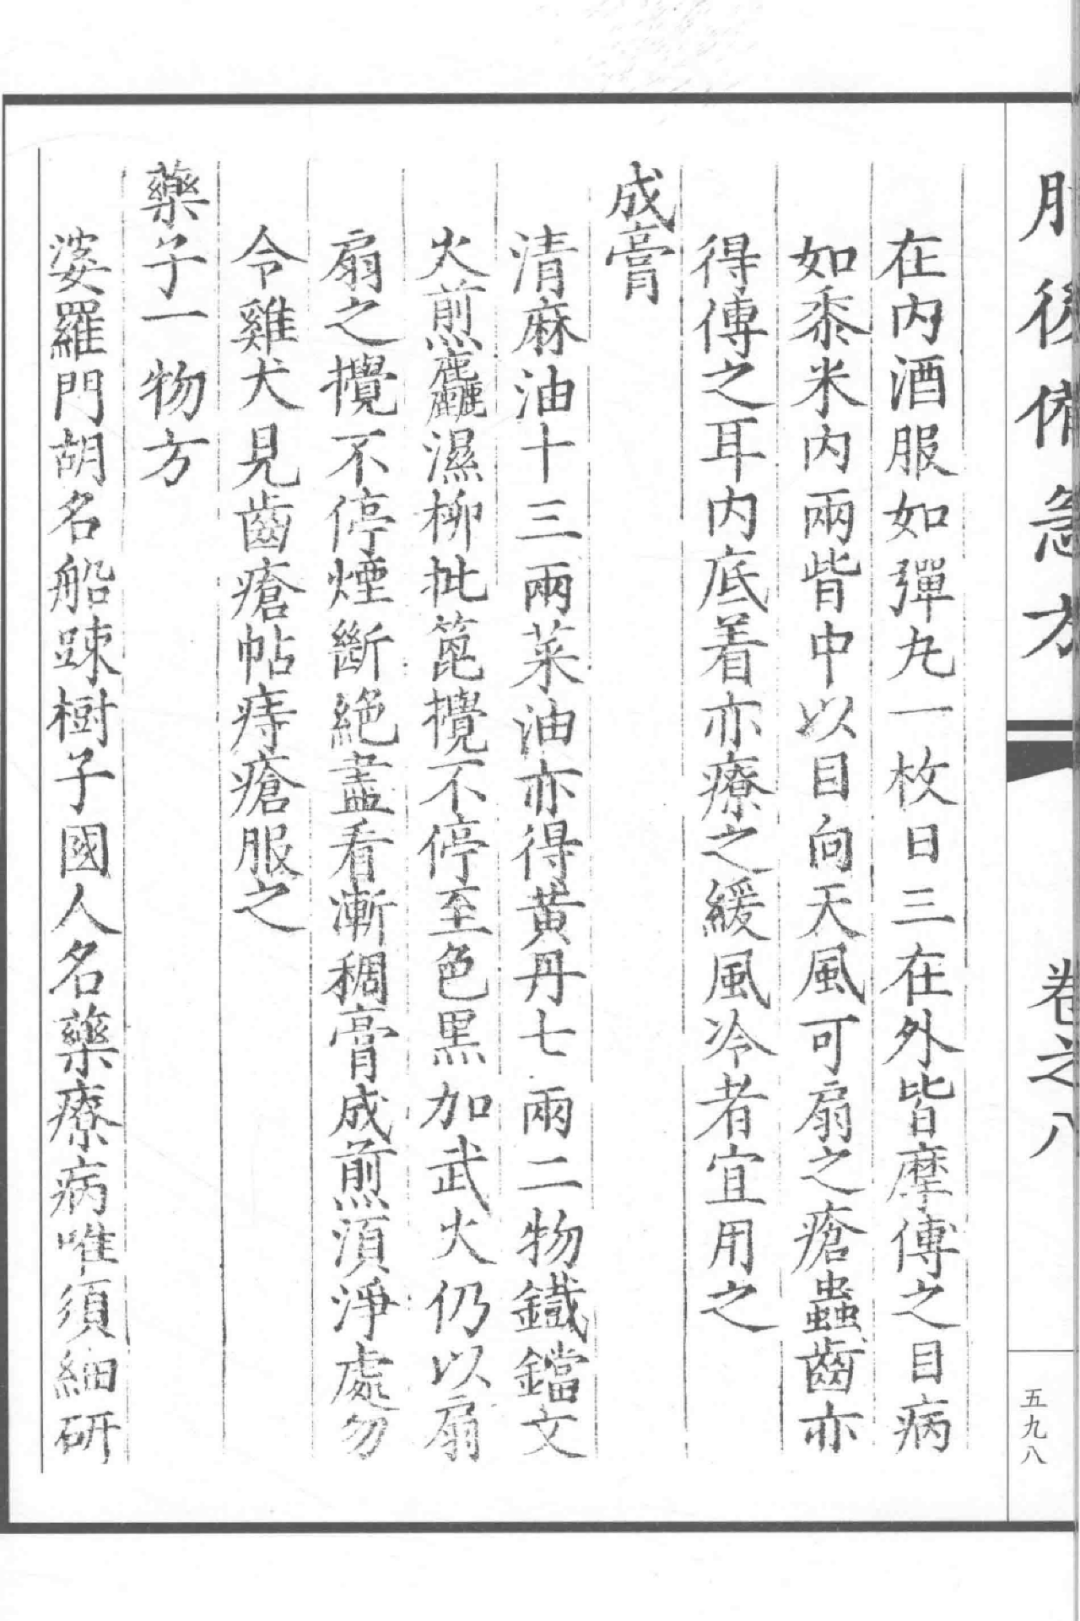 肘後備急方
卷之八
五九八
在内酒服如彈丸一枚日三在外皆摩傅之目病
如黍米内兩眥中以目向天風可扇之瘡蟲齒亦
得傅之耳内底着亦療之緩風冷者宜用之
成膏
清麻油十三兩菜油亦得黄丹七兩二物鐵鐺文
火煎麤濕柳批篦攪不停至色黑加武火仍以扇
扇之攪不停煙斷絶盡看漸稠膏成煎須淨處勿
令雞犬見齒瘡帖痔瘡服之
藥子一物方
婆羅門胡名船踈樹子國人名藥療病唯須細研